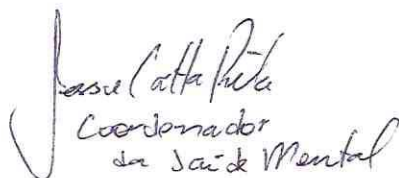 Catta Preta
Coordenador
da Saúde Mental